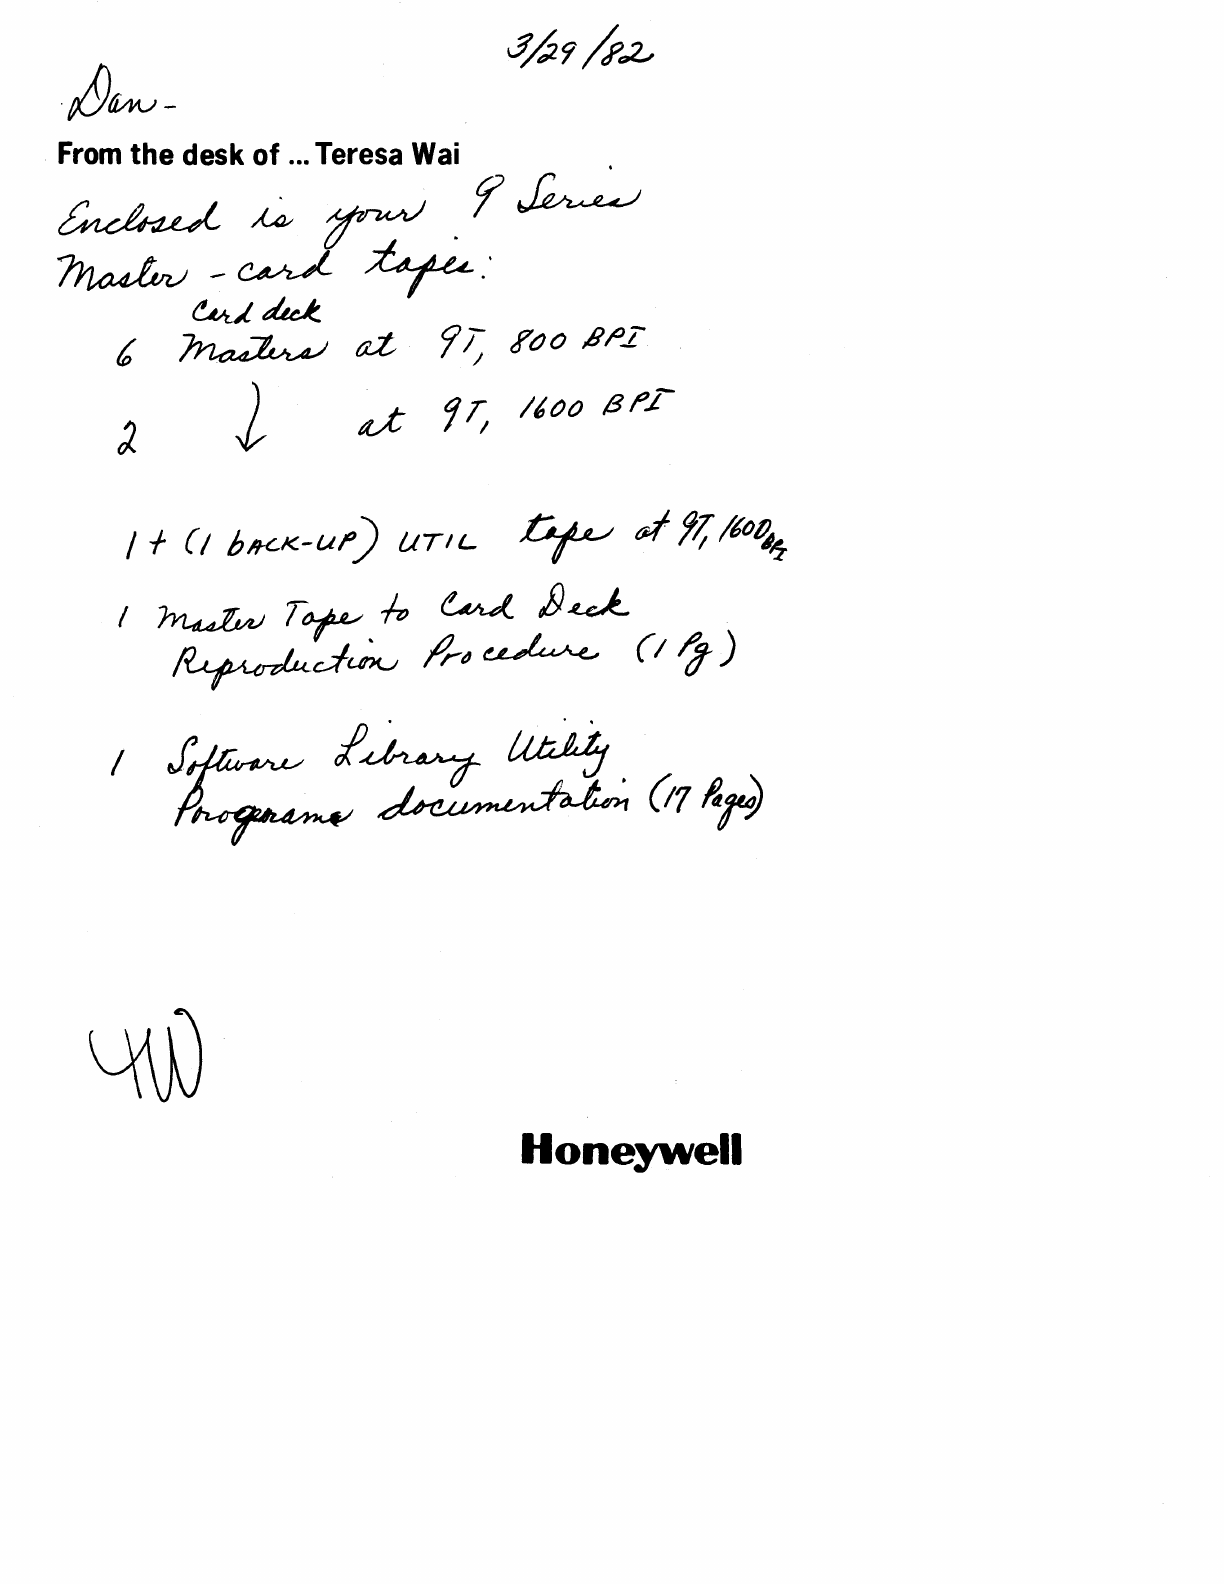 3/29/82
Dan -
From the desk of ... Teresa Wai
Enclosed is your 9 Series
Master - card tapes:
Card deck
6 Masters at 9T, 800 BPI
2 ↓ at 9T, 1600 BPI
1 + (1 bACK-UP) UTIL tape at 9T, 1600 BPI
1 Master Tape to Card Deck
Reproduction Procedure (1 Pg)
1 Software Library Utility
Programs documentation (17 Pages)
TW
Honeywell